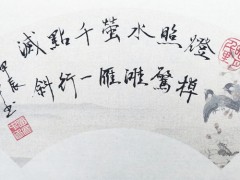 燈照水螢千點滅
棹驚灘雁一行斜
甲辰